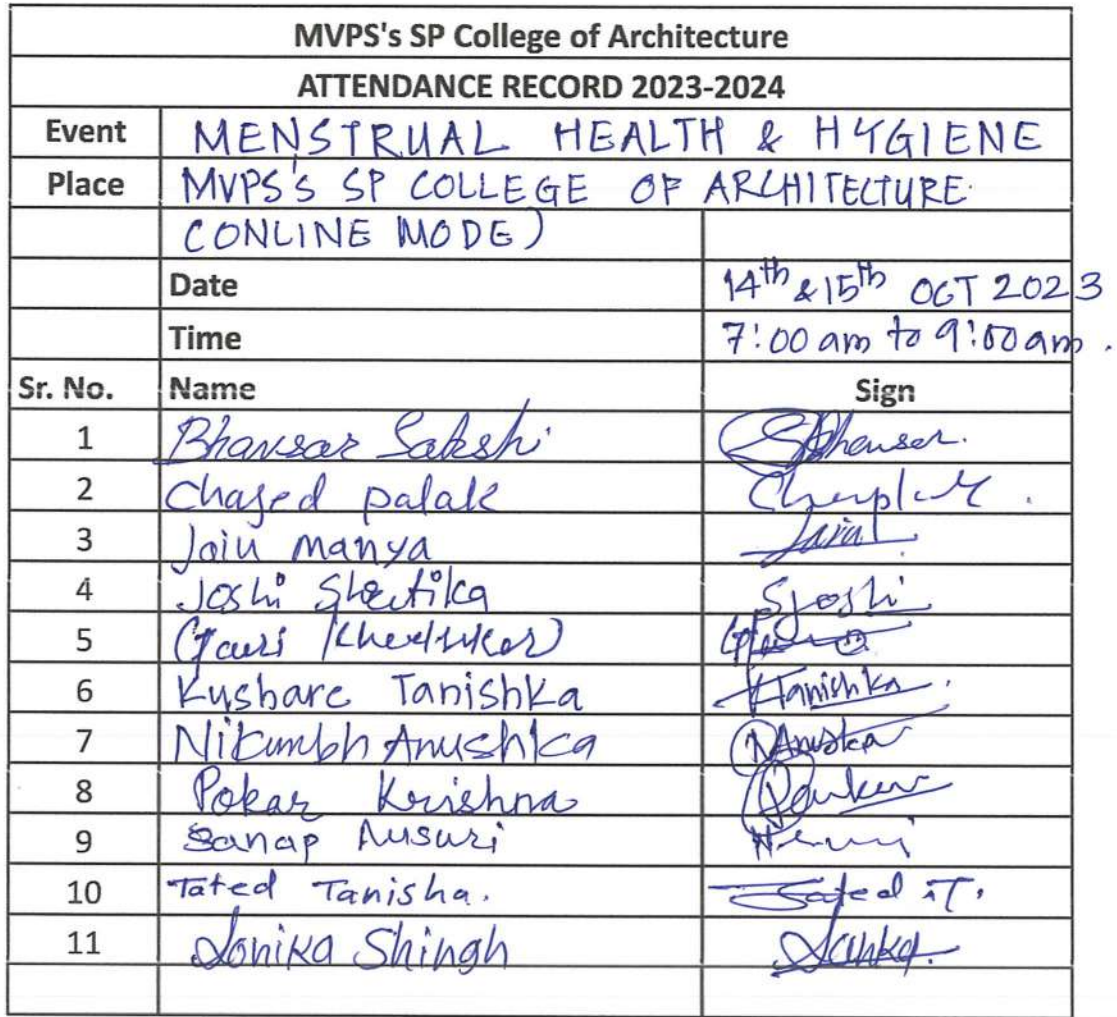 MVPS's SP College of Architecture
ATTENDANCE RECORD 2023-2024
Event MENSTRUAL HEALTH & HYGIENE
Place MVPS'S SP COLLEGE OF ARCHITECTURE
(ONLINE MODE)
Date 14th & 15th OCT 2023
Time 7:00 am to 9:00 am.
Sr. No. Name Sign
1 Bhavsar Sakshi
2 Chajed palak
3 Jain manya Jain
4 Joshi SJoshi
5 Gauri
6 Kusbare Tanishka Tanishka
7 Nikumbh Anushka Anushka
8 Pokar Krishna
9 Sanap
10 Tated Tanisha. Tated T.
11 Sonika Shingh